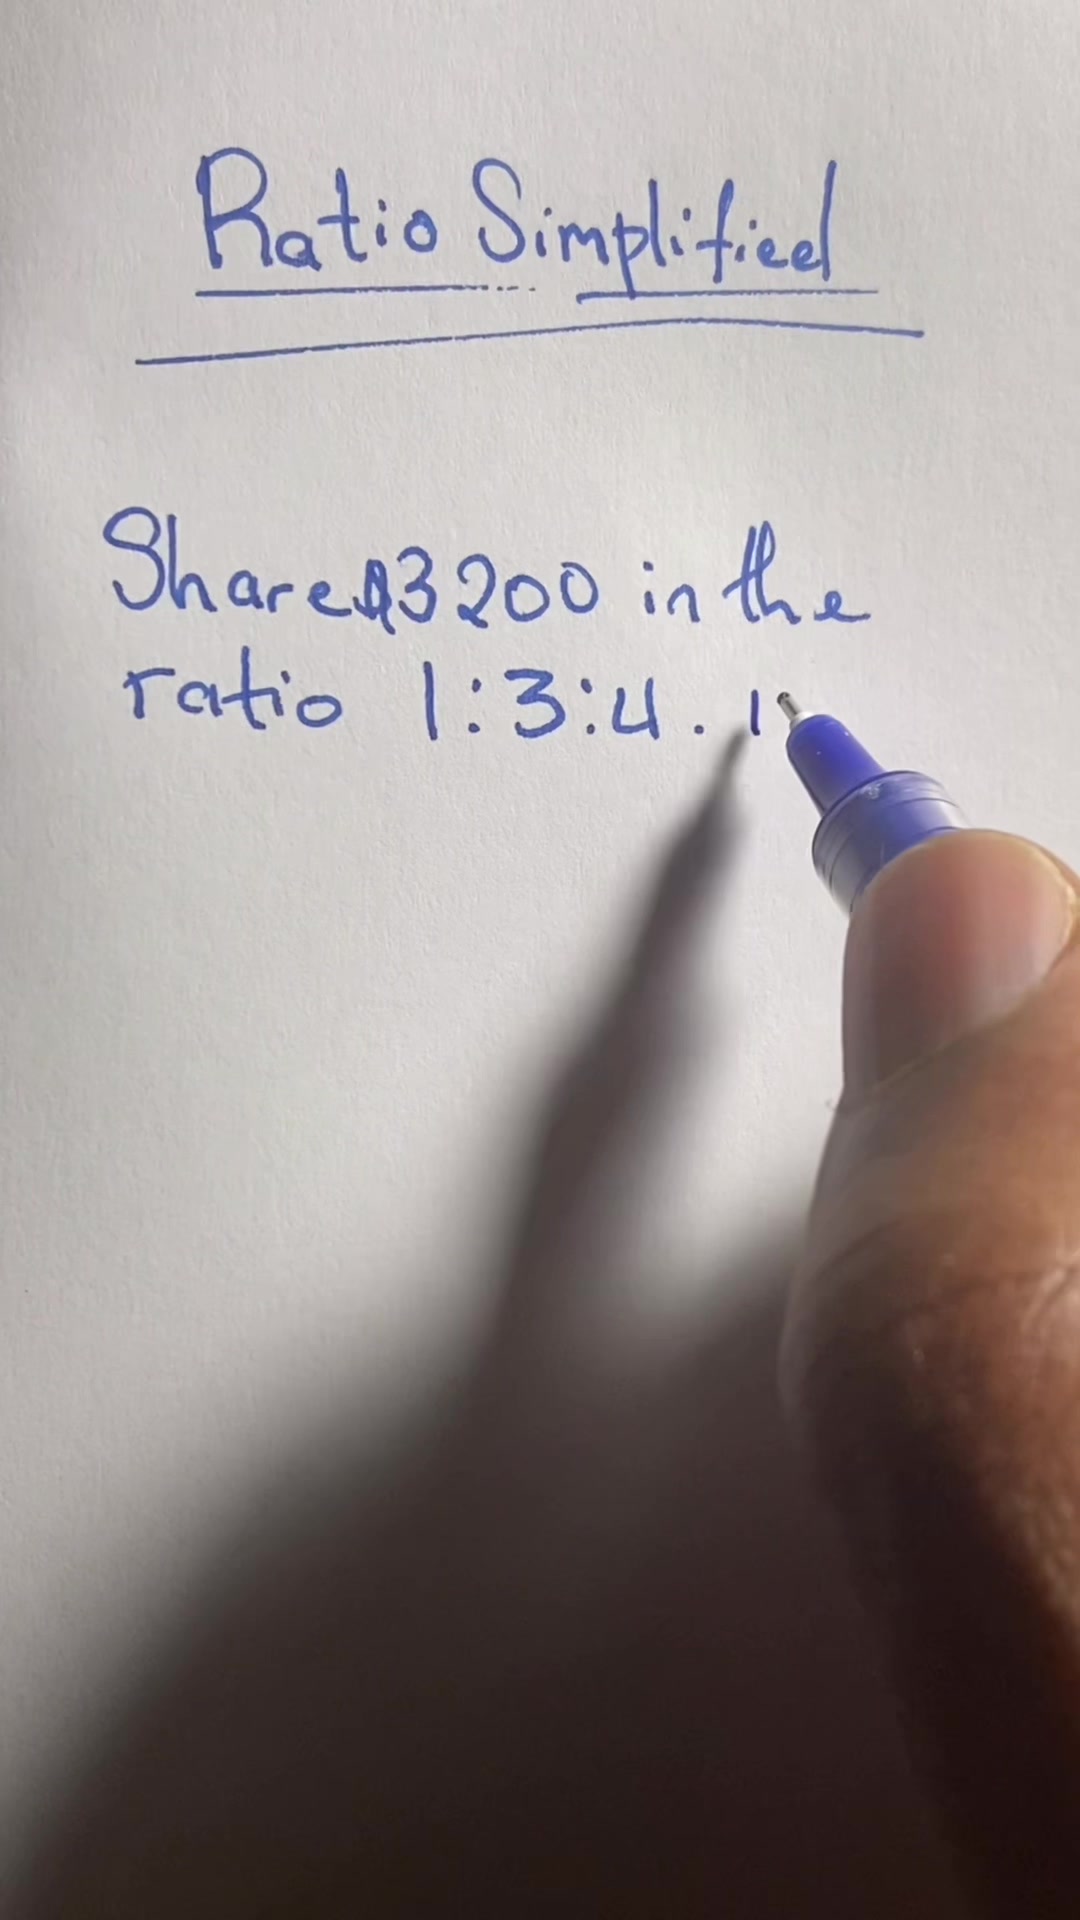 Ratio Simplified
Share $3200 in the
ratio 1:3:4. I